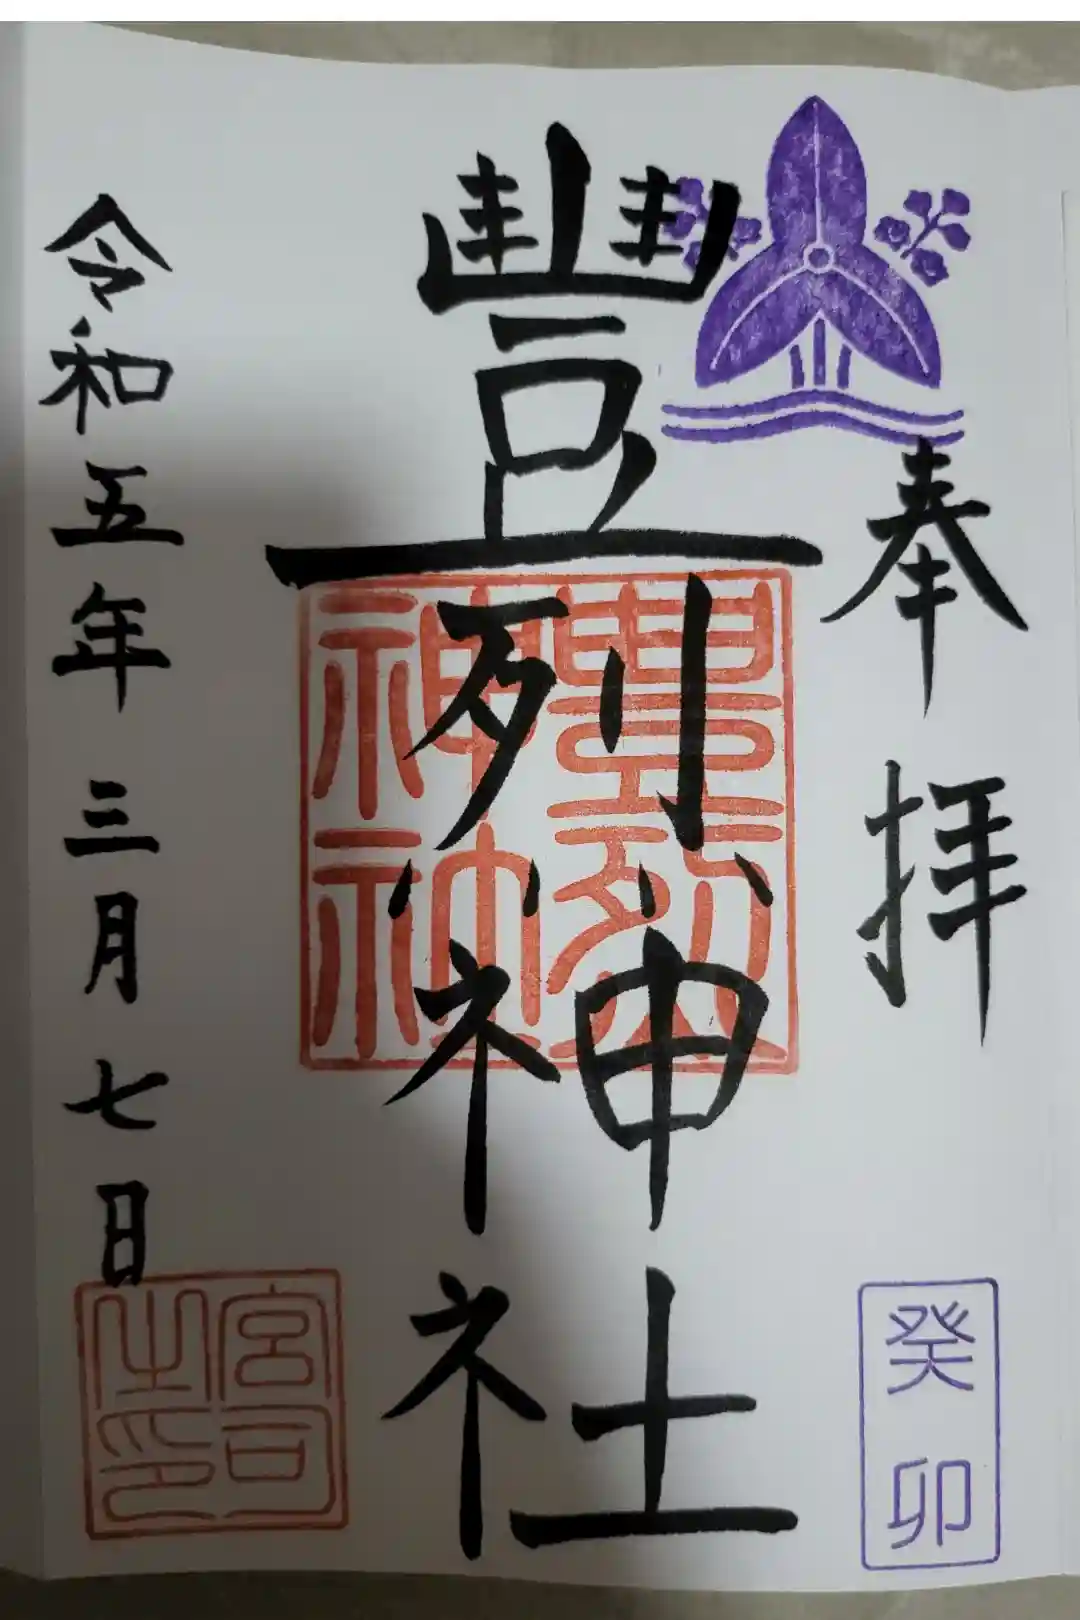 奉拝
癸卯
豐烈神社
豊烈神社
令和五年三月七日
宮司之印